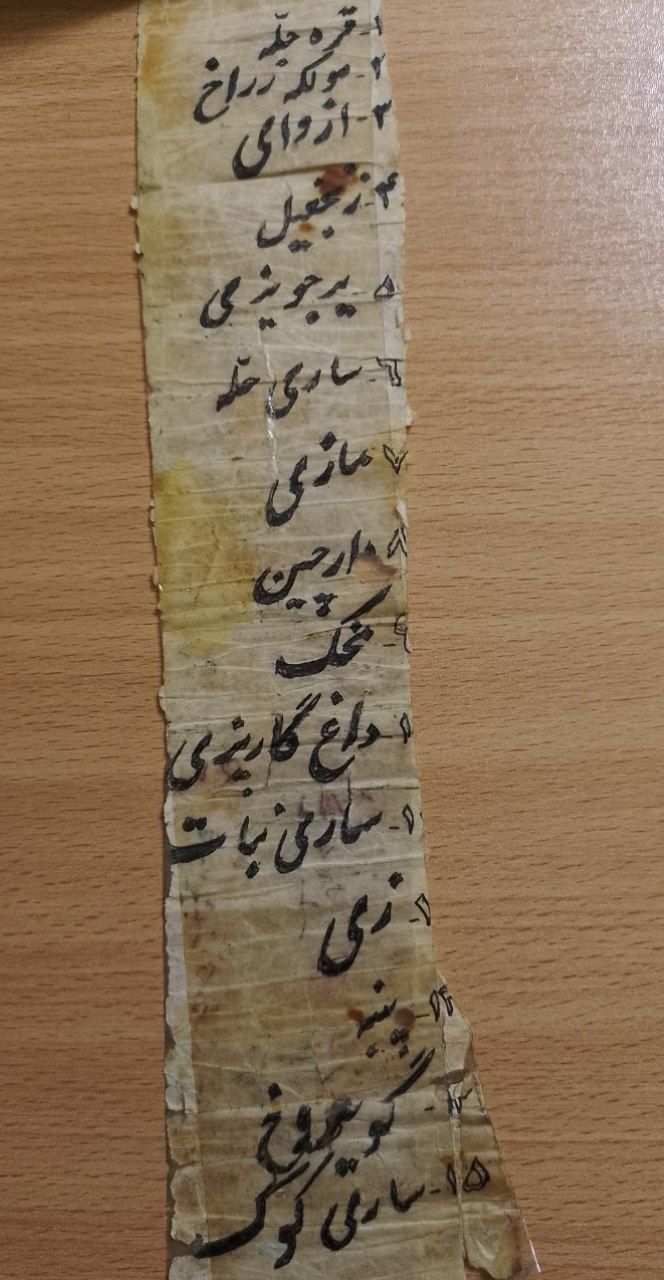 ۱- قره حلّه
۲- مولکه زراخ
۳- ازوای
۴- زنجفیل
۵- یرجویزی
٦- ساری حلّه
۷- مازی
۸- دارچین
۹- میخک
۱- داغ گاریزی
۱- ساری نبات
۱- زی
۱۳- پنبه
- گویچروخ
۱۵- ساری کوک